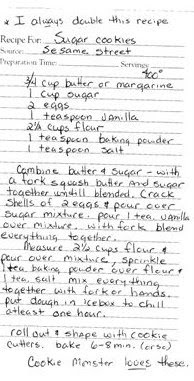 * I always double this recipe
Recipe For: Sugar cookies
Source: Sesame Street
Preparation Time: Serving:
400°
3/4 cup butter or margarine
1 cup sugar
2 eggs
1 teaspoon vanilla
2 1/2 cups flour
1 teaspoon baking powder
1 teaspoon salt
Combine butter & sugar - with
a fork squash butter and sugar
together until blended. Crack
shells of 2 eggs & pour over
sugar mixture. pour 1 tea. vanilla
over mixture. with fork blend
everything together.
Measure 2 1/2 cups flour &
pour over mixture, sprinkle
1 tea. baking powder over flour &
1 tea. salt mix everything
together with fork or hands.
put dough in icebox to chill
atleast one hour.
roll out & shape with cookie
cutters. bake 6-8 min. (or so)
Cookie Monster loves these.